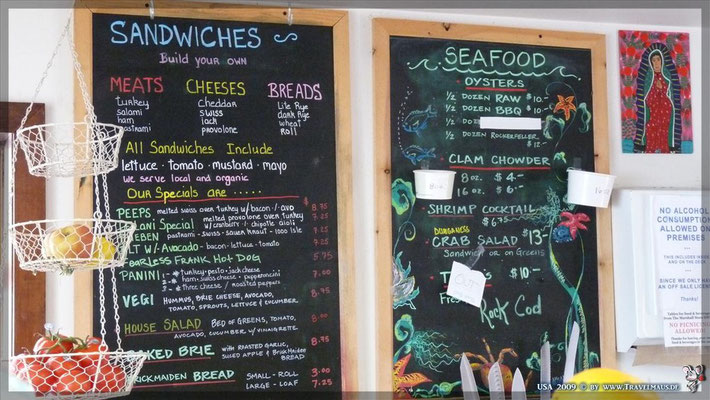 SANDWICHES
Build your own
MEATS
turkey
salami
ham
pastrami
CHEESES
Cheddar
swiss
Jack
provolone
BREADS
Lite Rye
dark Rye
wheat
Roll
All Sandwiches Include
lettuce · tomato · mustard · mayo
we serve local and organic
Our Specials are .....
PEEPS melted swiss over turkey w/ bacon / avo 8.75
lani Special melted provolone over turkey 7.25
w/ cranberry + chipotle aioli
EBEN pastrami - swiss - sauer kraut - 1000 isle 7.25
LT w/ Avocado - bacon - lettuce - tomato 7.25
EARLESS FRANK Hot Dog 5.75
PANINI 1- turkey - pesto - jack cheese 7.00
2- ham - swiss cheese - pepperoncini
3- three cheese / roasted peppers
VEGI HUMMUS, BRIE CHEESE, AVOCADO, 8.75
TOMATO, SPROUTS, LETTUCE & CUCUMBER
HOUSE SALAD BED OF GREENS, TOMATO, 8.00
AVOCADO, CUCUMBER w/ VINAIGRETTE
KED BRIE WITH ROASTED GARLIC, 8.75
SLICED APPLE & BrickMaiden BREAD
RICKMAIDEN BREAD SMALL - ROLL 3.00
LARGE - LOAF 7.25
SEAFOOD
OYSTERS
½ DOZEN RAW $10.-
½ DOZEN BBQ $10.-
½ DOZ
½ DOZEN ROCKERFELLER $12.-
CLAM CHOWDER
8 oz. $4-
16 oz. $6-
SHRIMP COCKTAIL
$6.75
DUNGANESS
CRAB SALAD $13-
SANDWICH OR ON GREENS
OUT
$10.-
Fres Rock Cod
NO ALCOHOL
CONSUMPTION
ALLOWED ON
PREMISES
THIS INCLUDES INSIDE
AND ON THE DECK
SINCE WE ONLY HAVE
AN OFF SALE LICENSE
Thanks!
NO PICNICING
ALLOWED!
USA 2009 © by www.Travelmaus.de